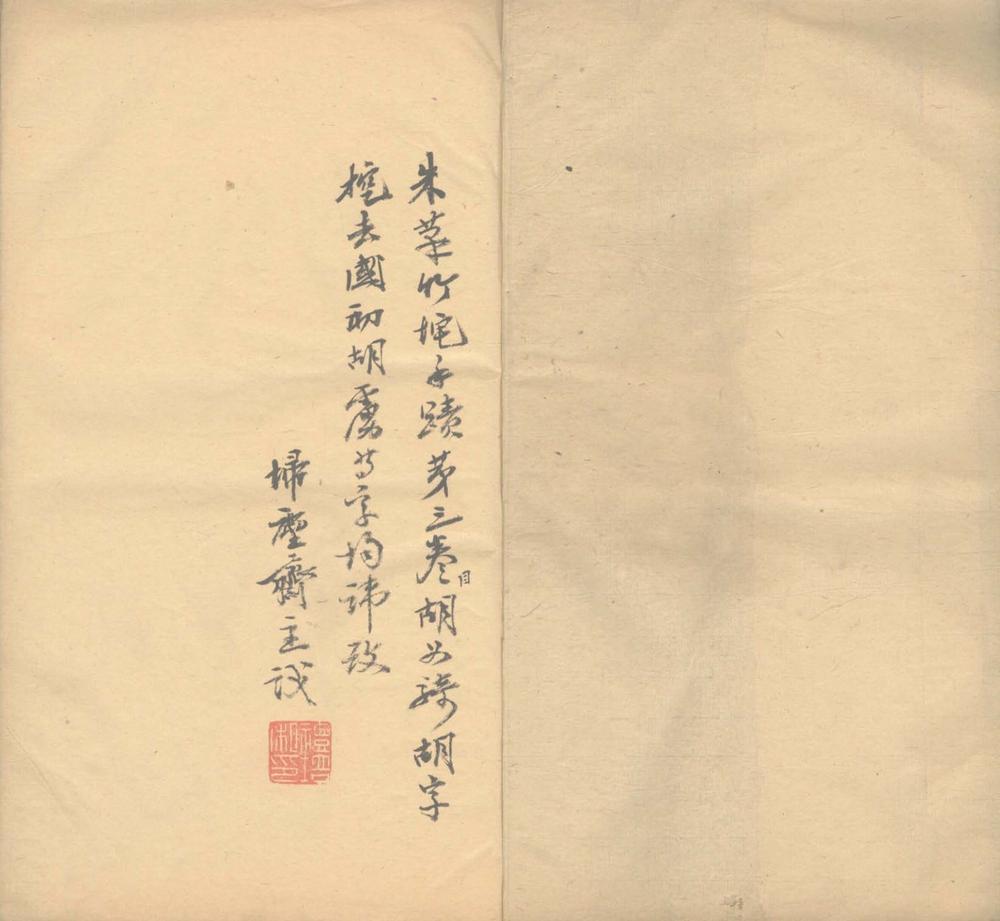 朱筆竹垞手蹟第三卷目胡女騎胡字
挖去國初胡虜等字均諱改
埽塵齋主識